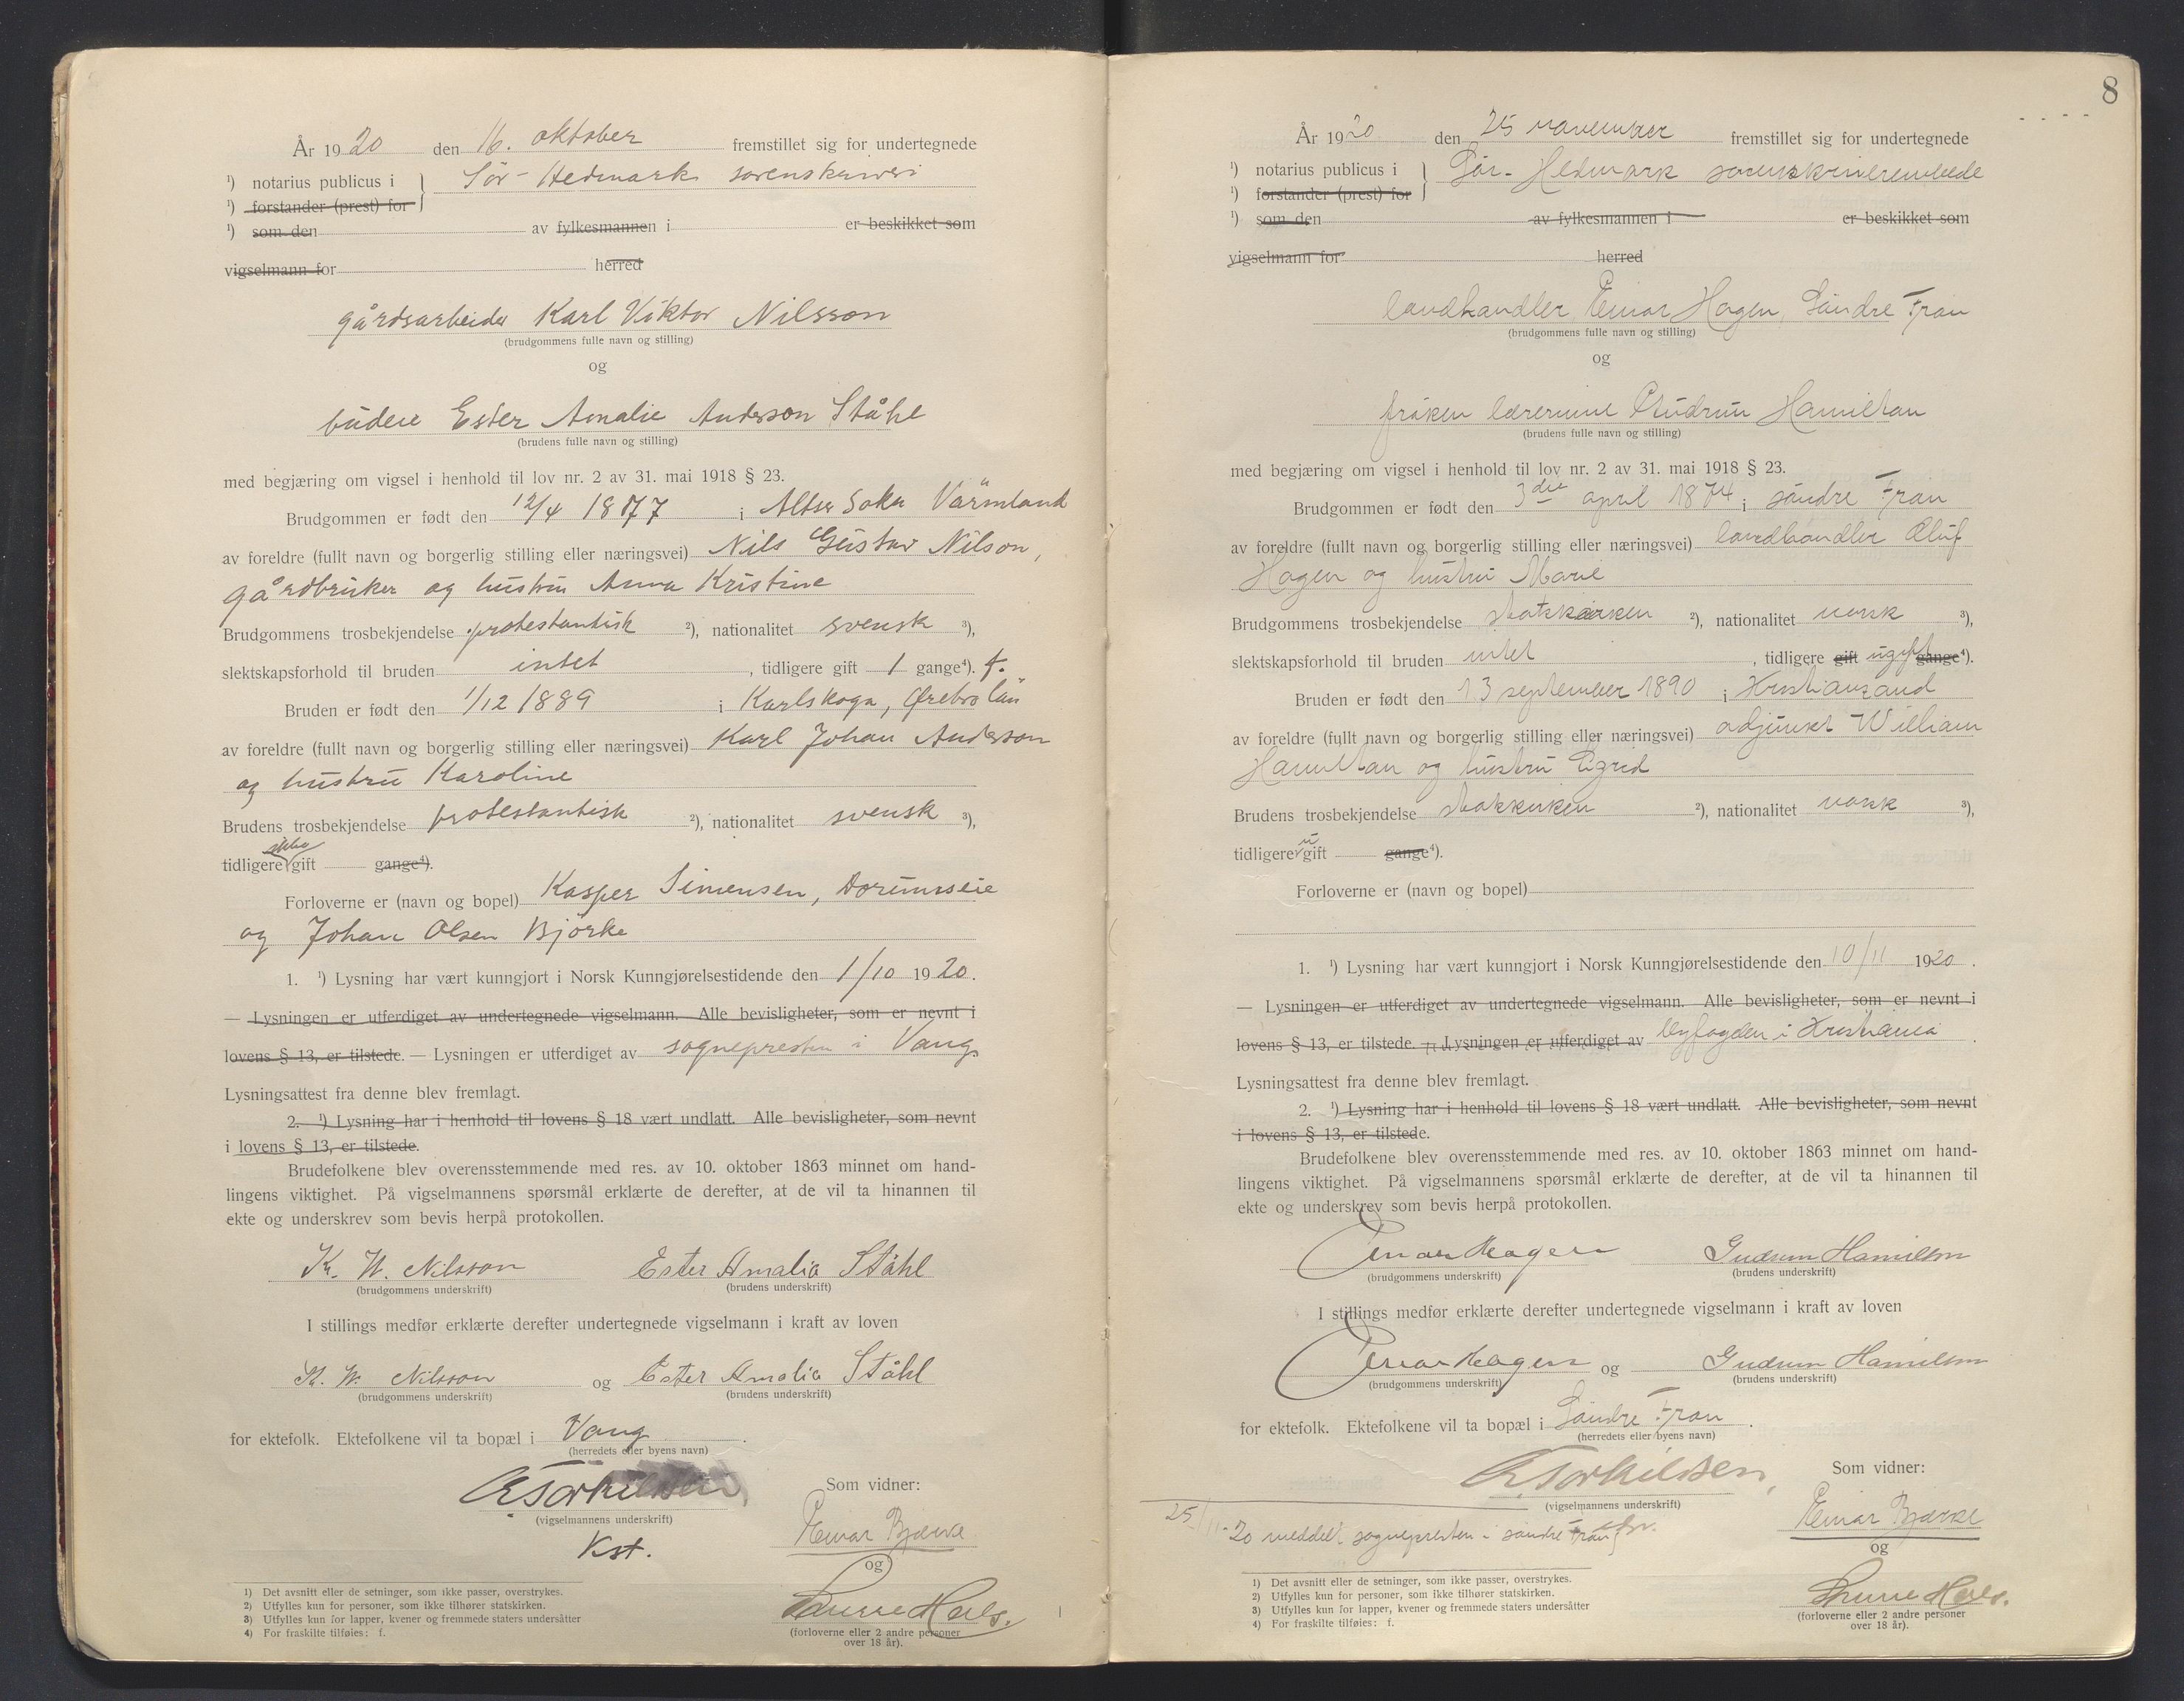 År 1920 den 16. oktober fremstillet sig for undertegnede
¹) notarius publicus i } Sör-Hedmark sorenskriveri
¹) forstander (prest) for
¹) som den av fylkesmannen i er beskikket som
vigselmann for herred
gårdsarbeider Karl Viktor Nilsson
(brudgommens fulle navn og stilling)
og
budeie Ester Amalie Anderson Ståhl
(brudens fulle navn og stilling)
med begjæring om vigsel i henhold til lov nr. 2 av 31. mai 1918 § 23.
Brudgommen er født den 12/4 1877 i Värmland
av foreldre (fullt navn og borgerlig stilling eller næringsvei) Nils Gustav Nilson,
gårdbruker og hustru Anna Kristine
Brudgommens trosbekjendelse protestantisk ²), nationalitet svensk ³),
slektskapsforhold til bruden intet, tidligere gift 1 gange⁴). f.
Bruden er født den 1/12 1889 i Karlskoga, Ørebro län
av foreldre (fullt navn og borgerlig stilling eller næringsvei) Karl Johan Anderson
og hustru Karoline
Brudens trosbekjendelse protestantisk ²), nationalitet svensk ³),
tidligere ikke gift gange⁴).
Forloverne er (navn og bopel) Kasper Simensen,
og Johan Olsen Björke
1. ¹) Lysning har vært kunngjort i Norsk Kunngjørelsestidende den 1/10 1920.
— Lysningen er utferdiget av undertegnede vigselmann. Alle bevisligheter, som er nevnt i
lovens § 13, er tilstede. — Lysningen er utferdiget av sognepresten i Vang.
Lysningsattest fra denne blev fremlagt.
2. ¹) Lysning har i henhold til lovens § 18 vært undlatt. Alle bevisligheter, som nevnt
i lovens § 13, er tilstede.
Brudefolkene blev overensstemmende med res. av 10. oktober 1863 minnet om hand-
lingens viktighet. På vigselmannens spørsmål erklærte de derefter, at de vil ta hinannen til
ekte og underskrev som bevis herpå protokollen.
K. W. Nilsson Ester Amalia Ståhl
(brudgommens underskrift) (brudens underskrift)
I stillings medfør erklærte derefter undertegnede vigselmann i kraft av loven
K. W. Nilsson og Ester Amalia Ståhl
(brudgommens underskrift) (brudens underskrift)
for ektefolk. Ektefolkene vil ta bopæl i Vang.
(herredets eller byens navn)
Torkildsen Som vidner:
(vigselmannens underskrift)
Kst. Einar Bjerke
og
(forloverne eller 2 andre personer
over 18 år).
1) Det avsnitt eller de setninger, som ikke passer, overstrykes.
2) Utfylles kun for personer, som ikke tilhører statskirken.
3) Utfylles kun for lapper, kvener og fremmede staters undersåtter
4) For fraskilte tilføies: f.
8
År 1920 den 25 november fremstillet sig for undertegnede
¹) notarius publicus i } Sör-Hedmark sorenskriverembede
¹) forstander (prest) for
¹) som den av fylkesmannen i er beskikket som
vigselmann for herred
landhandler Einar Hagen, Söndre Fron
(brudgommens fulle navn og stilling)
og
fröken lærerinne Gudrun Hamilton
(brudens fulle navn og stilling)
med begjæring om vigsel i henhold til lov nr. 2 av 31. mai 1918 § 23.
Brudgommen er født den 3die april 1874 i söndre Fron
av foreldre (fullt navn og borgerlig stilling eller næringsvei) landhandler Oluf
Hagen og hustru Marie
Brudgommens trosbekjendelse statskirken ²), nationalitet norsk ³),
slektskapsforhold til bruden intet, tidligere gift ugift gange⁴).
Bruden er født den 13 september 1890 i Kristiansand
av foreldre (fullt navn og borgerlig stilling eller næringsvei) adjunkt William
Hamilton og hustru Sigrid
Brudens trosbekjendelse statskirken ²), nationalitet norsk ³),
tidligere u gift gange⁴).
Forloverne er (navn og bopel)
1. ¹) Lysning har vært kunngjort i Norsk Kunngjørelsestidende den 10/11 1920.
— Lysningen er utferdiget av undertegnede vigselmann. Alle bevisligheter, som er nevnt i
lovens § 13, er tilstede. — Lysningen er utferdiget av byfogden i Kristiania.
Lysningsattest fra denne blev fremlagt.
2. ¹) Lysning har i henhold til lovens § 18 vært undlatt. Alle bevisligheter, som nevnt
i lovens § 13, er tilstede.
Brudefolkene blev overensstemmende med res. av 10. oktober 1863 minnet om hand-
lingens viktighet. På vigselmannens spørsmål erklærte de derefter, at de vil ta hinannen til
ekte og underskrev som bevis herpå protokollen.
Einar Hagen Gudrun Hamilton
(brudgommens underskrift) (brudens underskrift)
I stillings medfør erklærte derefter undertegnede vigselmann i kraft av loven
Einar Hagen og Gudrun Hamilton
(brudgommens underskrift) (brudens underskrift)
for ektefolk. Ektefolkene vil ta bopæl i Söndre Fron.
(herredets eller byens navn)
Torkildsen, Som vidner:
(vigselmannens underskrift)
25/11-20 meddelt sognepresten i söndre Fron Einar Bjerke
og
(forloverne eller 2 andre personer
over 18 år).
1) Det avsnitt eller de setninger, som ikke passer, overstrykes.
2) Utfylles kun for personer, som ikke tilhører statskirken.
3) Utfylles kun for lapper, kvener og fremmede staters undersåtter
4) For fraskilte tilføies: f.